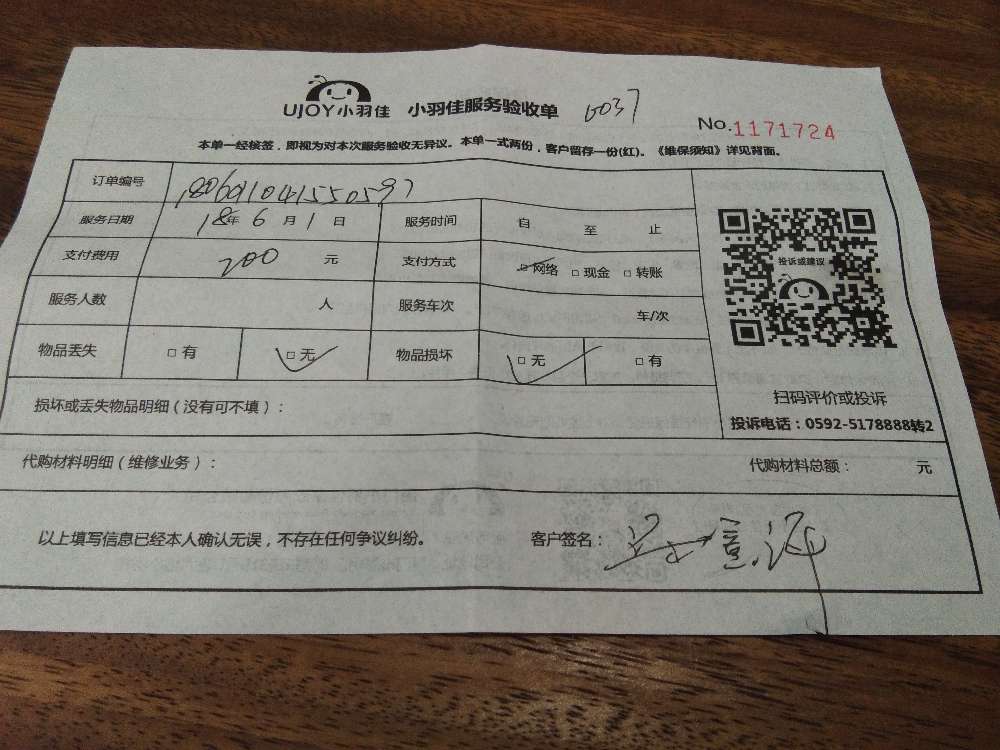 UJOY小羽佳 小羽佳服务验收单 6037
No.1171724
本单一经核签，即视为对本次服务验收无异议。本单一式两份，客户留存一份(红)。《维保须知》详见背面。
订单编号
服务日期 18年 6月 1日 服务时间 自 至 止
支付费用 200 元 支付方式 □网络 □现金 □转账
投诉或建议
服务人数 人 服务车次 车/次
物品丢失 □有 □无 物品损坏 □无 □有
扫码评价或投诉
损坏或丢失物品明细（没有可不填）：
投诉电话：0592-5178888转2
代购材料明细（维修业务）： 代购材料总额： 元
以上填写信息已经本人确认无误，不存在任何争议纠纷。 客户签名：